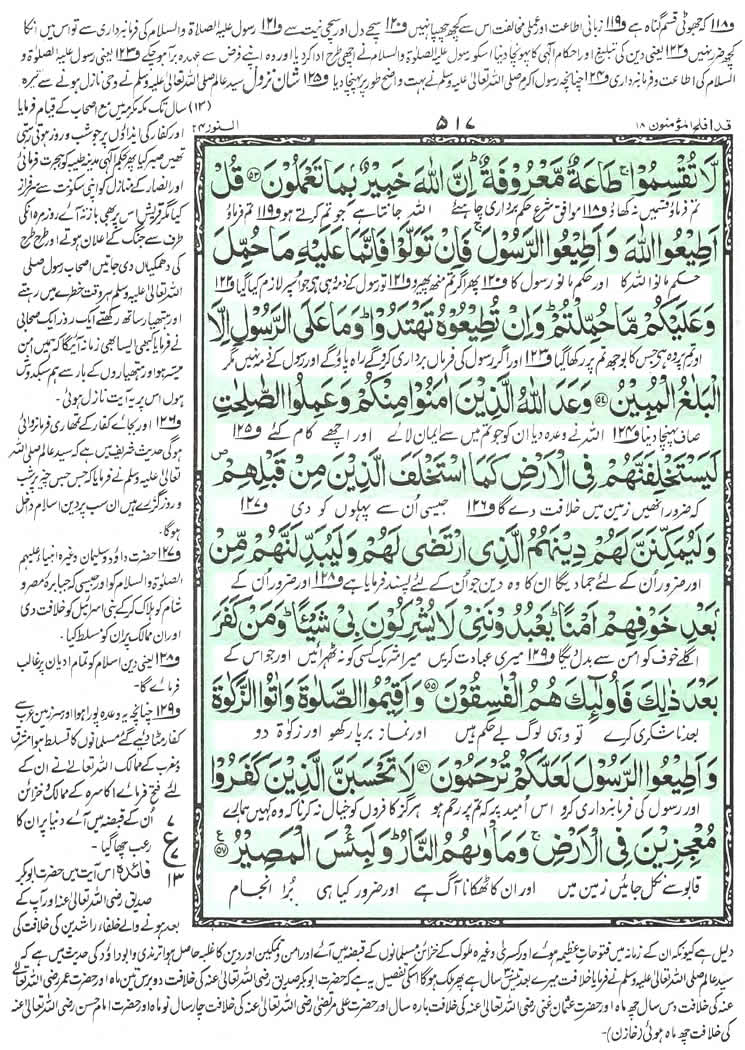 و۱۱۸ کہ جھوٹی قسم گناہ ہے و۱۱۹ زبانی اطاعت اور عملی مخالفت اس سے کچھ چھپا نہیں و۱۲۰ سچے دل اور سچی نیت سے و۱۲۱ رسول علیہ الصلاۃ والسلام کی فرمانبرداری سے تو اس میں ان کا
کچھ ضرر نہیں و۱۲۲ یعنی دین کی تبلیغ اور احکام الٰہی کا پہونچا دینا اسکو رسول علیہ الصلوٰۃ والسلام نے اچھی طرح ادا کردیا اور وہ اپنے فرض سے عہدہ برآ ہوچکے و۱۲۳ یعنی رسول علیہ الصلوٰۃ و
السلام کی اطاعت و فرمانبرداری و۱۲۴ چنانچہ رسول اکرم صلی اللہ تعالیٰ علیہ وسلم نے بہت واضح طور پر پہنچا دیا و۱۲۵ شان نزول سید عالم صلی اللہ تعالیٰ علیہ وسلم نے وحی نازل ہونے سے تیرہ
(۱۳) سال تک مکہ مکرمہ میں مع اصحاب کے قیام فرمایا
قد افلح المؤمنون ۱۸
۵۱۷
النور ۲۴
لَّا تُقْسِمُوْا ۚ طَاعَةٌ مَّعْرُوْفَةٌ ؕ اِنَّ اللّٰهَ خَبِیْرٌۢ بِمَا تَعْمَلُوْنَ ﴿۵۳﴾ قُلْ
تم فرماؤ قسمیں نہ کھاؤ و۱۱۸ موافق شرع حکم برداری چاہئے اللہ جانتا ہے جو تم کرتے ہو و۱۱۹ تم فرماؤ
اَطِیْعُوا اللّٰهَ وَ اَطِیْعُوا الرَّسُوْلَ ۚ فَاِنْ تَوَلَّوْا فَاِنَّمَا عَلَیْهِ مَا حُمِّلَ
حکم مانو اللہ کا اور حکم مانو رسول کا و۱۲۰ پھر اگر تم منھ پھیرو و۱۲۱ تو رسول کے ذمہ وہی ہے جو اس پر لازم کیا گیا و۱۲۲
وَ عَلَیْكُمْ مَّا حُمِّلْتُمْ ؕ وَ اِنْ تُطِیْعُوْهُ تَهْتَدُوْا ؕ وَ مَا عَلَی الرَّسُوْلِ اِلَّا
اور تم پر وہ ہے جس کا بوجھ تم پر رکھا گیا و۱۲۳ اور اگر رسول کی فرماں برداری کرو گے راہ پاؤ گے اور رسول کے ذمہ نہیں مگر
الْبَلٰغُ الْمُبِیْنُ ﴿۵۴﴾ وَعَدَ اللّٰهُ الَّذِیْنَ اٰمَنُوْا مِنْكُمْ وَ عَمِلُوا الصّٰلِحٰتِ
صاف پہنچا دینا و۱۲۴ اللہ نے وعدہ دیا ان کو جو تم میں سے ایمان لائے اور اچھے کام کئے و۱۲۵
لَیَسْتَخْلِفَنَّهُمْ فِی الْاَرْضِ كَمَا اسْتَخْلَفَ الَّذِیْنَ مِنْ قَبْلِهِمْ ۪
کہ ضرور انھیں زمین میں خلافت دے گا و۱۲۶ جیسی اُن سے پہلوں کو دی و۱۲۷
وَ لَیُمَكِّنَنَّ لَهُمْ دِیْنَهُمُ الَّذِی ارْتَضٰی لَهُمْ وَ لَیُبَدِّلَنَّهُمْ مِّنْۢ
اور ضرور اُن کے لئے جما دیگا ان کا وہ دین جو اُن کے لئے پسند فرمایا ہے و۱۲۸ اور ضرور اُن کے
بَعْدِ خَوْفِهِمْ اَمْنًا ؕ یَعْبُدُوْنَنِیْ لَا یُشْرِكُوْنَ بِیْ شَیْـًٔا ؕ وَ مَنْ كَفَرَ
اگلے خوف کو امن سے بدل دیگا و۱۲۹ میری عبادت کریں میرا شریک کسی کو نہ ٹھہرائیں اور جو اس کے
بَعْدَ ذٰلِكَ فَاُولٰٓىِٕكَ هُمُ الْفٰسِقُوْنَ ﴿۵۵﴾ وَ اَقِیْمُوا الصَّلٰوةَ وَ اٰتُوا الزَّكٰوةَ
بعد ناشکری کرے تو وہی لوگ بے حکم ہیں اور نماز برپا رکھو اور زکوٰۃ دو
وَ اَطِیْعُوا الرَّسُوْلَ لَعَلَّكُمْ تُرْحَمُوْنَ ﴿۵۶﴾ لَا تَحْسَبَنَّ الَّذِیْنَ كَفَرُوْا
اور رسول کی فرمانبرداری کرو اس اُمید پر کہ تم پر رحم ہو ہرگز کافروں کو خیال نہ کرنا کہ وہ کہیں ہمارے
مُعْجِزِیْنَ فِی الْاَرْضِ ۚ وَ مَاْوٰىهُمُ النَّارُ ؕ وَ لَبِئْسَ الْمَصِیْرُ ﴿۵۷﴾
قابو سے نکل جائیں زمین میں اور ان کا ٹھکانا آگ ہے اور ضرور کیا ہی بُرا انجام
اور کفار کی ایذاؤں پر جو شب و روز ہوتی رہتی
تھیں صبر کیا پھر بحکم الٰہی مدینہ طیبہ کو ہجرت فرمائی
اور انصار کے منازل کو اپنی سکونت سے سرفراز
کیا مگر قریش اس پر بھی باز نہ آئے روزمرہ ان کی
طرف سے جنگ کے اعلان ہوتے اور طرح طرح
کی دھمکیاں دی جاتیں اصحاب رسول صلی
اللہ تعالیٰ علیہ وسلم ہر وقت خطرے میں رہتے
اور ہتھیار ساتھ رکھتے ایک روز ایک صحابی
نے فرمایا کبھی ایسا بھی زمانہ آئیگا کہ ہمیں امن
میسر ہو اور ہتھیاروں کے بار سے ہم سبکدوش
ہوں اس پر یہ آیت نازل ہوئی۔
و۱۲۶ اور بجائے کفار کے تمھاری فرمانروائی
ہوگی حدیث شریف میں ہے کہ سید عالم صلی اللہ
تعالیٰ علیہ وسلم نے فرمایا کہ جس جس چیز پر شب
و روز گزرے ہیں ان سب پر دین اسلام داخل
ہوگا۔
و۱۲۷ حضرت داؤد و سلیمان وغیرہ انبیاء علیہم
الصلوٰۃ والسلام کو اور جیسی کہ جبابرۂ مصر و
شام کو ہلاک کرکے بنی اسرائیل کو خلافت دی
اور ان ممالک پر ان کو مسلط کیا۔
و۱۲۸ یعنی دین اسلام کو تمام ادیان پر غالب
فرمائے گا۔
و۱۲۹ چنانچہ یہ وعدہ پورا ہوا اور سرزمین عرب سے
کفار مٹا دیئے گئے مسلمانوں کا تسلط ہوا مشرق
و مغرب کے ممالک اللہ تعالیٰ نے ان کے
لئے فتح فرمائے اکاسرہ کے ممالک و خزائن
اُن کے قبضہ میں آئے دنیا پر ان کا
رعب چھا گیا۔
۷
ع
۷
۱۳
فائدہ اس آیت میں حضرت ابوبکر
صدیق رضی اللہ تعالیٰ عنہ اور آپ کے
بعد ہونے والے خلفاء راشدین کی خلافت کی
دلیل ہے کیونکہ ان کے زمانہ میں فتوحات عظیمہ ہوئے اور کسریٰ وغیرہ ملوک کے خزائن مسلمانوں کے قبضہ میں آئے اور امن و تمکین اور دین کا غلبہ حاصل ہوا ترمذی و ابوداؤد کی حدیث میں ہے کہ
سید عالم صلی اللہ تعالیٰ علیہ وسلم نے فرمایا خلافت میرے بعد تیس سال ہے پھر ملک ہوگا اسکی تفصیل یہ ہے کہ حضرت ابوبکر صدیق رضی اللہ تعالیٰ عنہ کی خلافت دو برس تین ماہ اور حضرت عمر رضی اللہ تعالیٰ
عنہ کی خلافت دس سال چھ ماہ اور حضرت عثمان غنی رضی اللہ تعالیٰ عنہ کی خلافت بارہ سال اور حضرت علی مرتضیٰ رضی اللہ تعالیٰ عنہ کی خلافت چار سال نو ماہ اور حضرت امام حسن رضی اللہ تعالیٰ عنہ
کی خلافت چھ ماہ ہوئی (خازن)۔